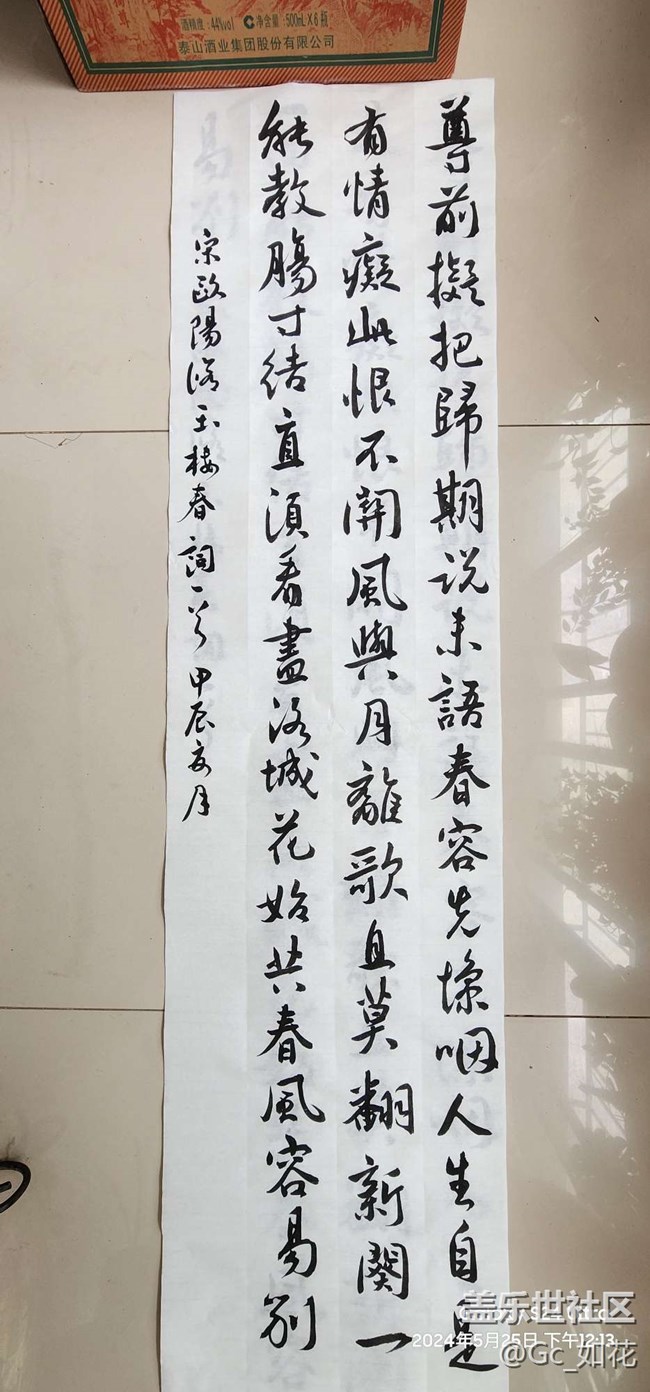 酒精度：44%vol 净含量：500mL×6瓶
泰山酒业集团股份有限公司
尊前擬把歸期说未語春容先惨咽人生自是
有情癡此恨不關風與月離歌且莫翻新闋一
能教腸寸結直須看盡洛城花始共春風容易别
宋歐陽修玉楼春詞一首甲辰夏月
盖乐世社区
2024年5月25日 下午12:13
@Gc_如花